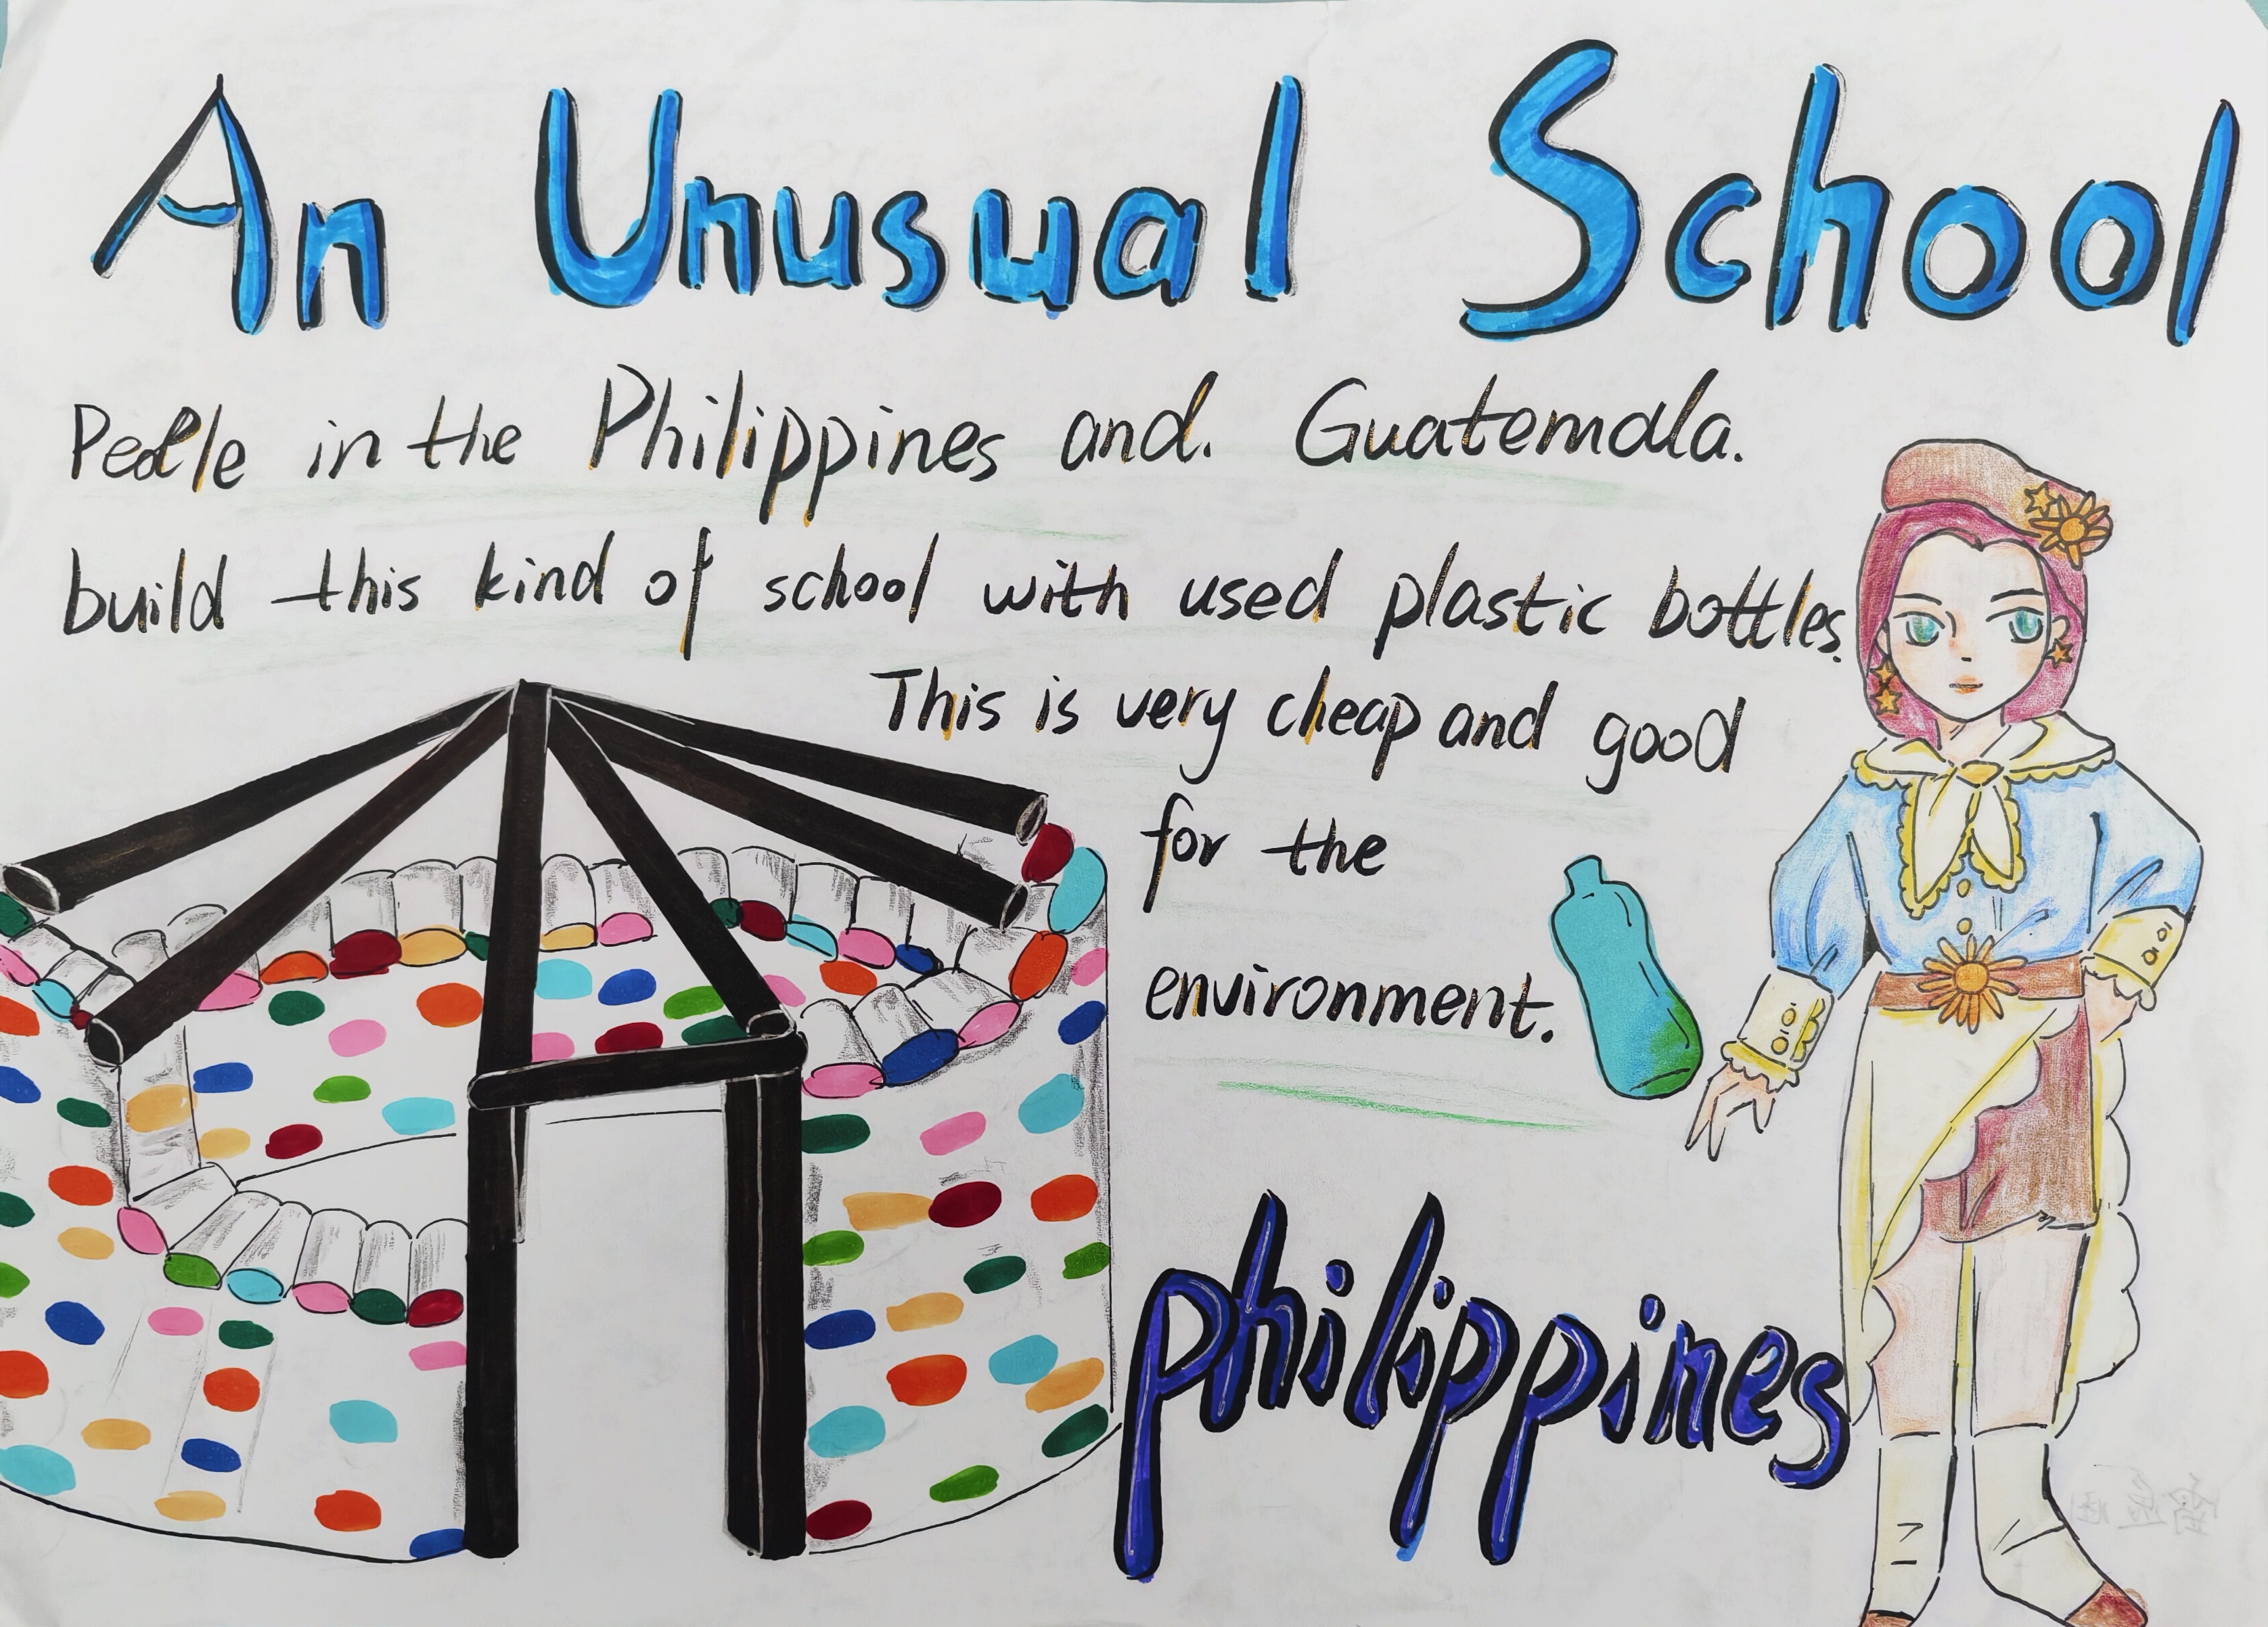 An Unusual School
People in the Philippines and. Guatemala.
build this kind of school with used plastic bottles.
This is very cheap and good
for the
environment.
philippines